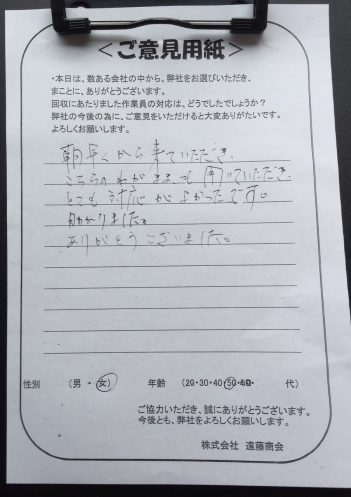 ＜ご意見用紙＞
・本日は、数ある会社の中から、弊社をお選びいただき、
まことに、ありがとうございます。
回収にあたりました作業員の対応は、どうでしたでしょうか？
弊社の今後の為に、ご意見をいただけると大変ありがたいです。
よろしくお願いします。
朝早くから来ていただき、
こちらのわがままも聞いていただき、
とても対応がよかったです。
助かりました。
ありがとうございました。
性別 （男・女） 年齢 （20・30・40・50・60・ 代）
ご協力いただき、誠にありがとうございます。
今後とも、弊社をよろしくお願いします。
株式会社 遠藤商会